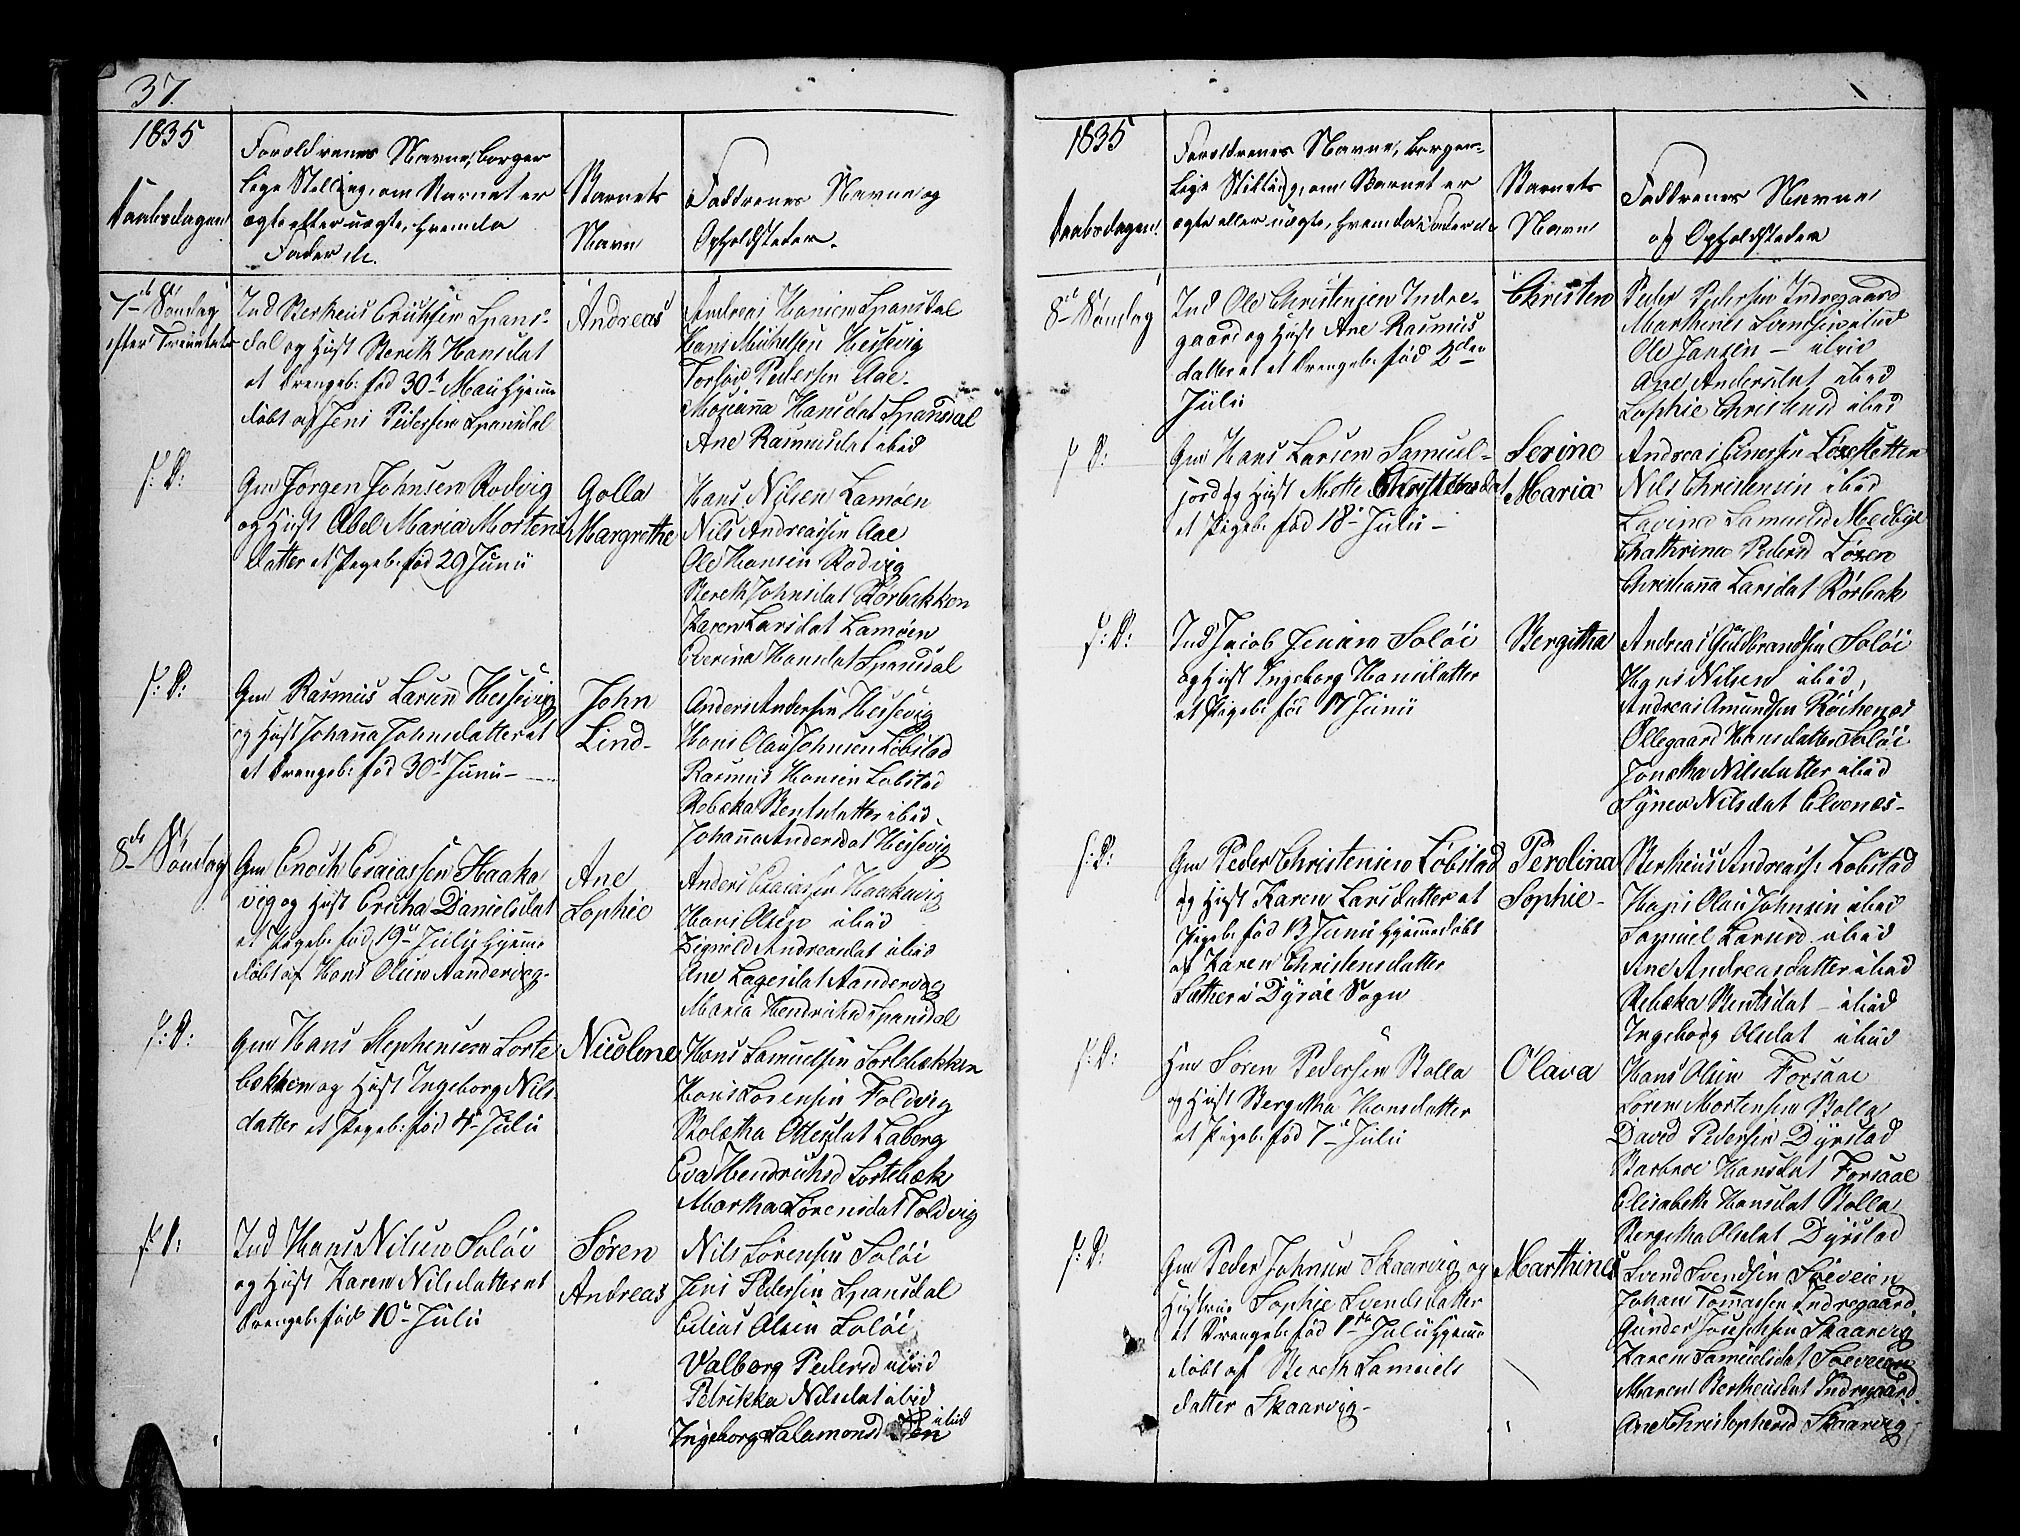 37.
1835
Daabsdagen
Foreldrenes Navne, borger
lige Stilling, om Barnet er
ægte eller uægte, fremda
Fader &c.
Barnets
Navn
Faddrenes Navne og
Opholdsteder.
7de Søndag
efter Trinitatis
Ind Berheus Erichsen Spans-
dal og Hust Bereth Hansdat
et Drengeb: fød 30te Maii hjemme
døbt af Jens Pedersen Spansdal
Andreas
Andreas Hansen Spansdal
Hans Michelsen Hessevig
Pedersen Aae
Hansdat Spansdal
Ane Rasmusdat ibid
S: D:
Gm Jørgen Johnsen Rodvig
og Hust Abel Maria Mortens
datter et Pigeb: fød 29 Junii
Golla
Margrethe
Hans Nilsen Lamøen
Nils Andreassen Aae
Ole Hansen Rodvig
Bereth Johnsdat Rørbakken
Karen Larsdat Lamøen
Everina Hansdat Spansdal
S: D:
Gm Rasmus Larsen Hessevig
og Hust Johanna Johnsdatter et
et Drengeb: fød 30te Junii
John
Lind
Anders Andersen Hessevig
Hans Olau Johnsen Løbstad
Rasmus Hansen Løbstad
Rebæka Bentsdatter ibid
Johanna Andersdat Hessevig
8de Søndag
Gm Enoch Esaiassen Haaka
vig og Hust Ericha Danielsdat
et Pigeb: fød 19de July hjemme
døbt af Hans Olsen Aandervag
Ane
Sophie
Anders Esaiassen Haakavig
Hans Olsen ibid
Zignild Andreasdat ibid
Ane Lagesdat Aandervag
Maria Hendrichsd Spansdal
S: D:
Gm Hans Stephensen Sorte
bækken og Hust Ingeborg Nils
datter et Pigeb: fød 4de Julii
Nicoline
Hans Samuelsen Sortebækken
Hans Lorensen Foldvig
Ottesdat Laberg
Eva Hendrichsd Sortebæk
Martha Lørensdat Foldvig
S: D:
Ind Hans Nilsen Soløi
og Hust Karen Nilsdatter et
Drengeb: fød 10de Julii
Søren
Andreas
Nils Sørensen Soløi
Jens Pedersen Spansdal
Elias Olsen Soløi
Valborg Pedersd ibid
Petrikka Nilsdat ibid
Ingeborg Salamonsd ibid
1835
Daabsdagen
Foreldrenes Navne, borger-
lige Stilling, om Barnet er
ægte eller uægte, fremda Fader &c
Barnets
Navn
Faddrenes Navne
og Opholdsteder
8de Søndag
Ind Ole Christensen Indre-
gaard og Hust Ane Rasmus
datter et et Drengeb: fød 2den
Julii
Christen
Peder Pedersen Indregaard
Marthinus Svendsen ibid
Ole Jansen - ibid
Ane Andersdat ibid
Sophie Christensd ibid
S: D:
Gm Hans Larsen Samuel-
jord og Hust Mette Christensdat
et Pigeb: fød 18de Julii
Serine
Maria
Andreas Einersen Løxesletten
Nils Christensen ibid
Lavina Samuelsd Medbye
Chathrina Pedersd Løxen
Christianna Larsdat Rørbak
S: D:
Ind Jacob Jensen Soløi
og Hust Ingeborg Hansdatter
et Pigeb: fød 17 Junii
Bergitha
Andreas Guldbrandsen Soløi
Hans Nilsen ibid,
Andreas Amundsen Røkenes
Ollegaard Hansdatter Soløi
Jonetha Nilsdatter ibid
Synev Nilsdat Elvenæs
S: D:
Gm Peder Christensen Løbstad
og Hust Karen Larsdatter et
Pigeb: fød 13 Junii hjemmedøbt
af Karen Christensdatter
Sæther i Dyrøe Sogn
Perolina
Sophie
Berheus Andreass: Løbstad
Hans Olau Johnsen ibid
Samuel Larsen ibid
Ane Andreasdatter ibid
Rebæka Bentsdat - ibid
Ingeborg Olsdat ibid
S: D:
Hm Søren Pedersen Bolla
og Hust Bergitha Hansdatter
et Pigeb: fød 7de Julii
Olava
Hans Olsen Forsaae
Loren Mortensen Bolla
David Pedersen Dyrstad
Barbroe Hansdat Forsaae
Elisabeth Hansdat Bolla
Bergitha Olsdat Dyrstad
S: D:
Gm Peder Johnsen Skaarvig og
Hustrue Sophie Svendsdatter
et Drengeb: fød 1ste Julii hjemme
døbt af Bereth Samuels
datter Skaarvig
Marthines
Svend Svendsen Søeveien
Johan Tomassen Indregaard
Gunder Josephsen Skaarvig
Karen Samuelsdat Søeveien
Maren Berheusdat Indregaard
Ane Christophersd Skaarvig